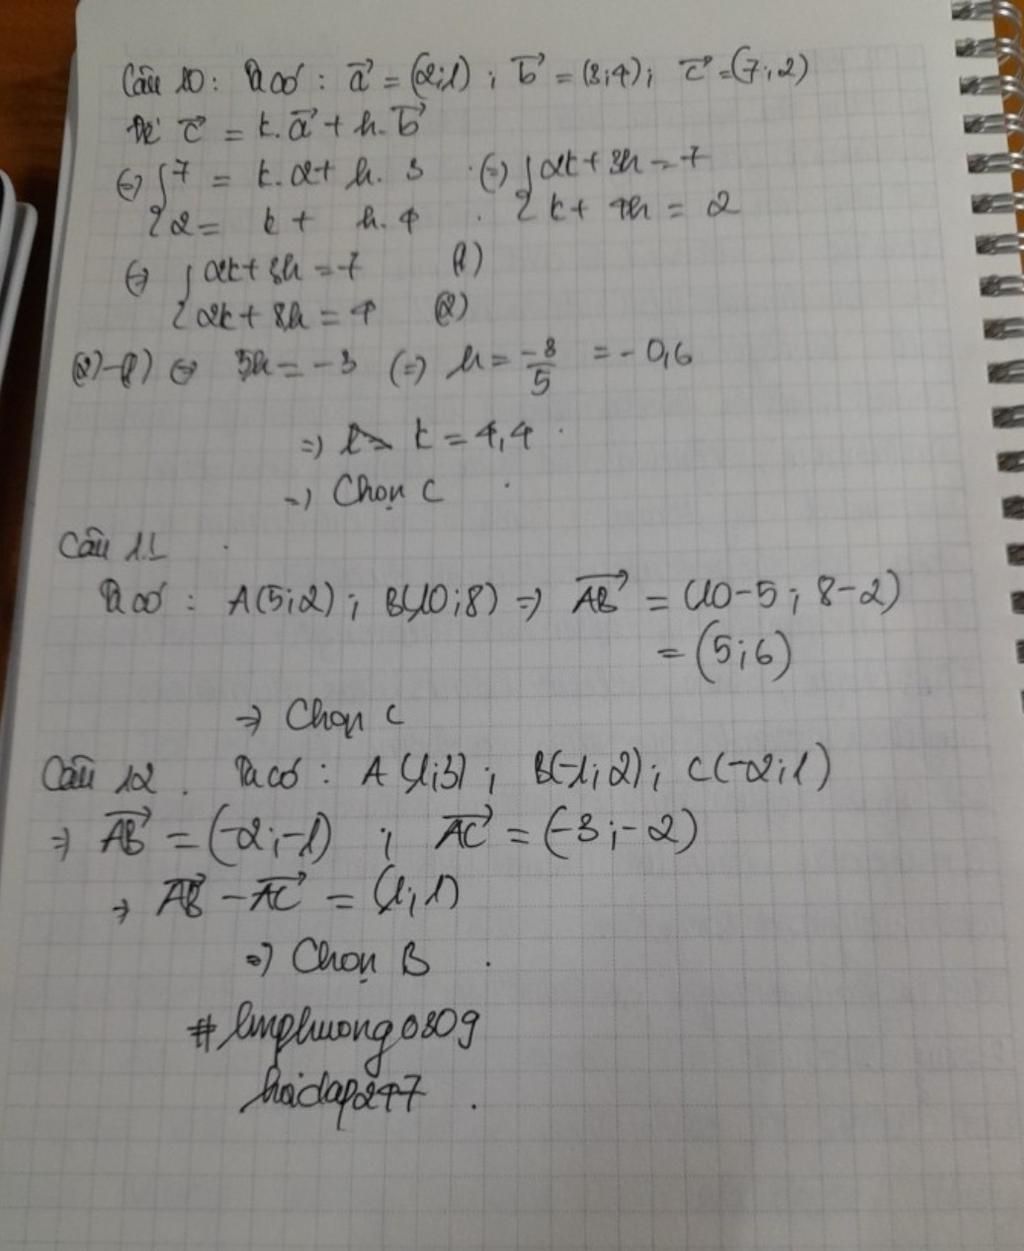 Câu 10: Ta có: a⃗ = (2;1); b⃗ = (3;4); c⃗ = (7;2)
Để c⃗ = k.a⃗ + h.b⃗
(=) { 7 = k.2 + h.3 (=) { 2k + 3h = 7
{ 2 = k + h.4 { k + 4h = 2
(=) { 2k + 3h = 7 (1)
{ 2k + 8h = 4 (2)
(2)-(1) (=) 5h = -3 (=) h = -3/5 = -0,6
=) k = 4,4
=) Chọn C
Câu 11
Ta có: A(5;2); B(10;8) =) AB⃗ = (10-5; 8-2)
= (5;6)
=) Chọn C
Câu 12. Ta có: A(1;3); B(-1;2); C(-2;1)
=) AB⃗ = (-2;-1); AC⃗ = (-3;-2)
=) AB⃗ - AC⃗ = (1;1)
=) Chọn B.
hoidap247.